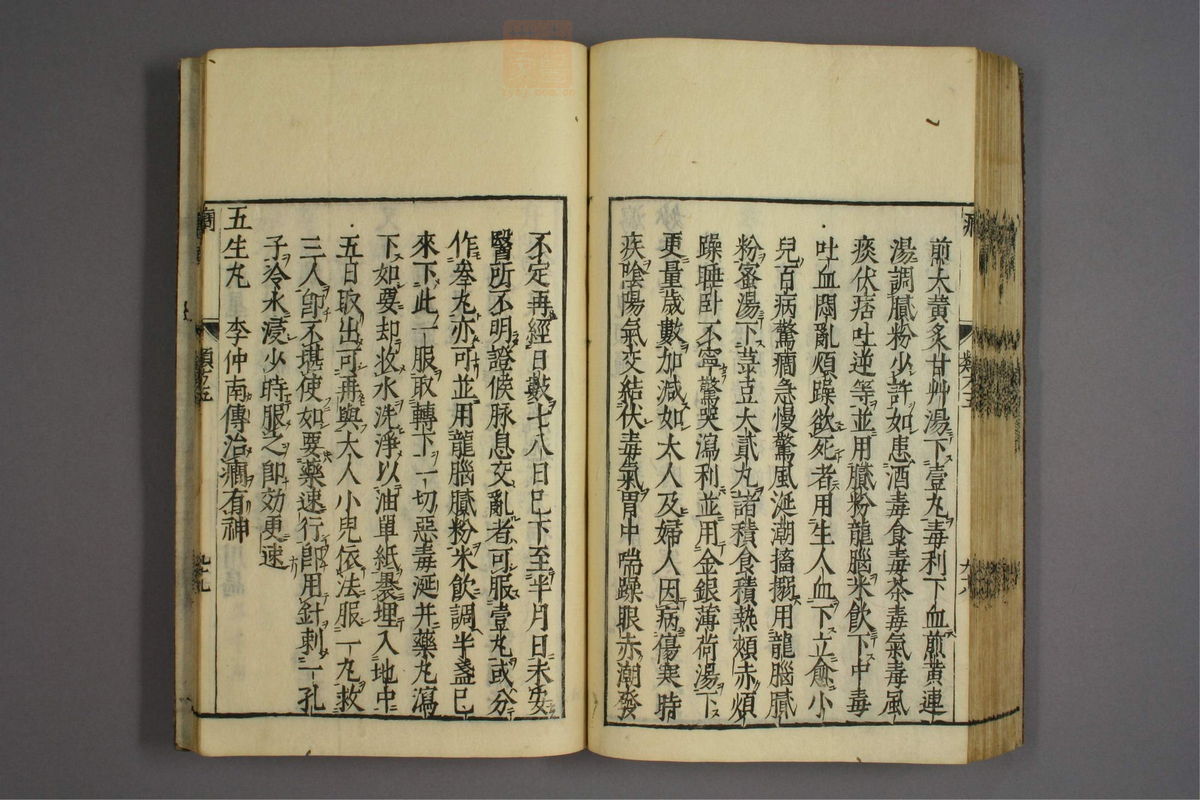 煎大黃炙甘艸湯下壹丸毒利下血煎黃連
湯調膩粉少許如患酒毒食毒茶毒氣毒風
痰伏痞吐逆等並用膩粉龍腦米飲下中毒
吐血悶亂煩躁欲死者用生人血下立愈小
兒百病驚癇急慢驚風涎潮搐搦用龍腦膩
粉蜜湯下菉豆大貳丸諸積食積熱頰赤煩
躁睡卧不寧驚哭瀉利並用金銀薄荷湯下
更量歲數加減如大人及婦人因病傷寒時
疾陰陽氣交結伏毒氣胃中喘躁眼赤潮發
不定再經日數七八日已下至半月日未安
醫所不明證候脉息交亂者可服壹丸或分
作叄丸亦可並用龍腦膩粉米飲調半盞已
來下此一服取轉下一切惡毒涎并藥丸瀉
下如要却收水洗淨以油單紙裹埋入地中
五日取出可再與大人小兒依法服一丸救
三人卽不堪使如要藥速行卽用針刺一孔
子冷水浸少時服之卽効更速
五生丸 李仲南傳治癇有神